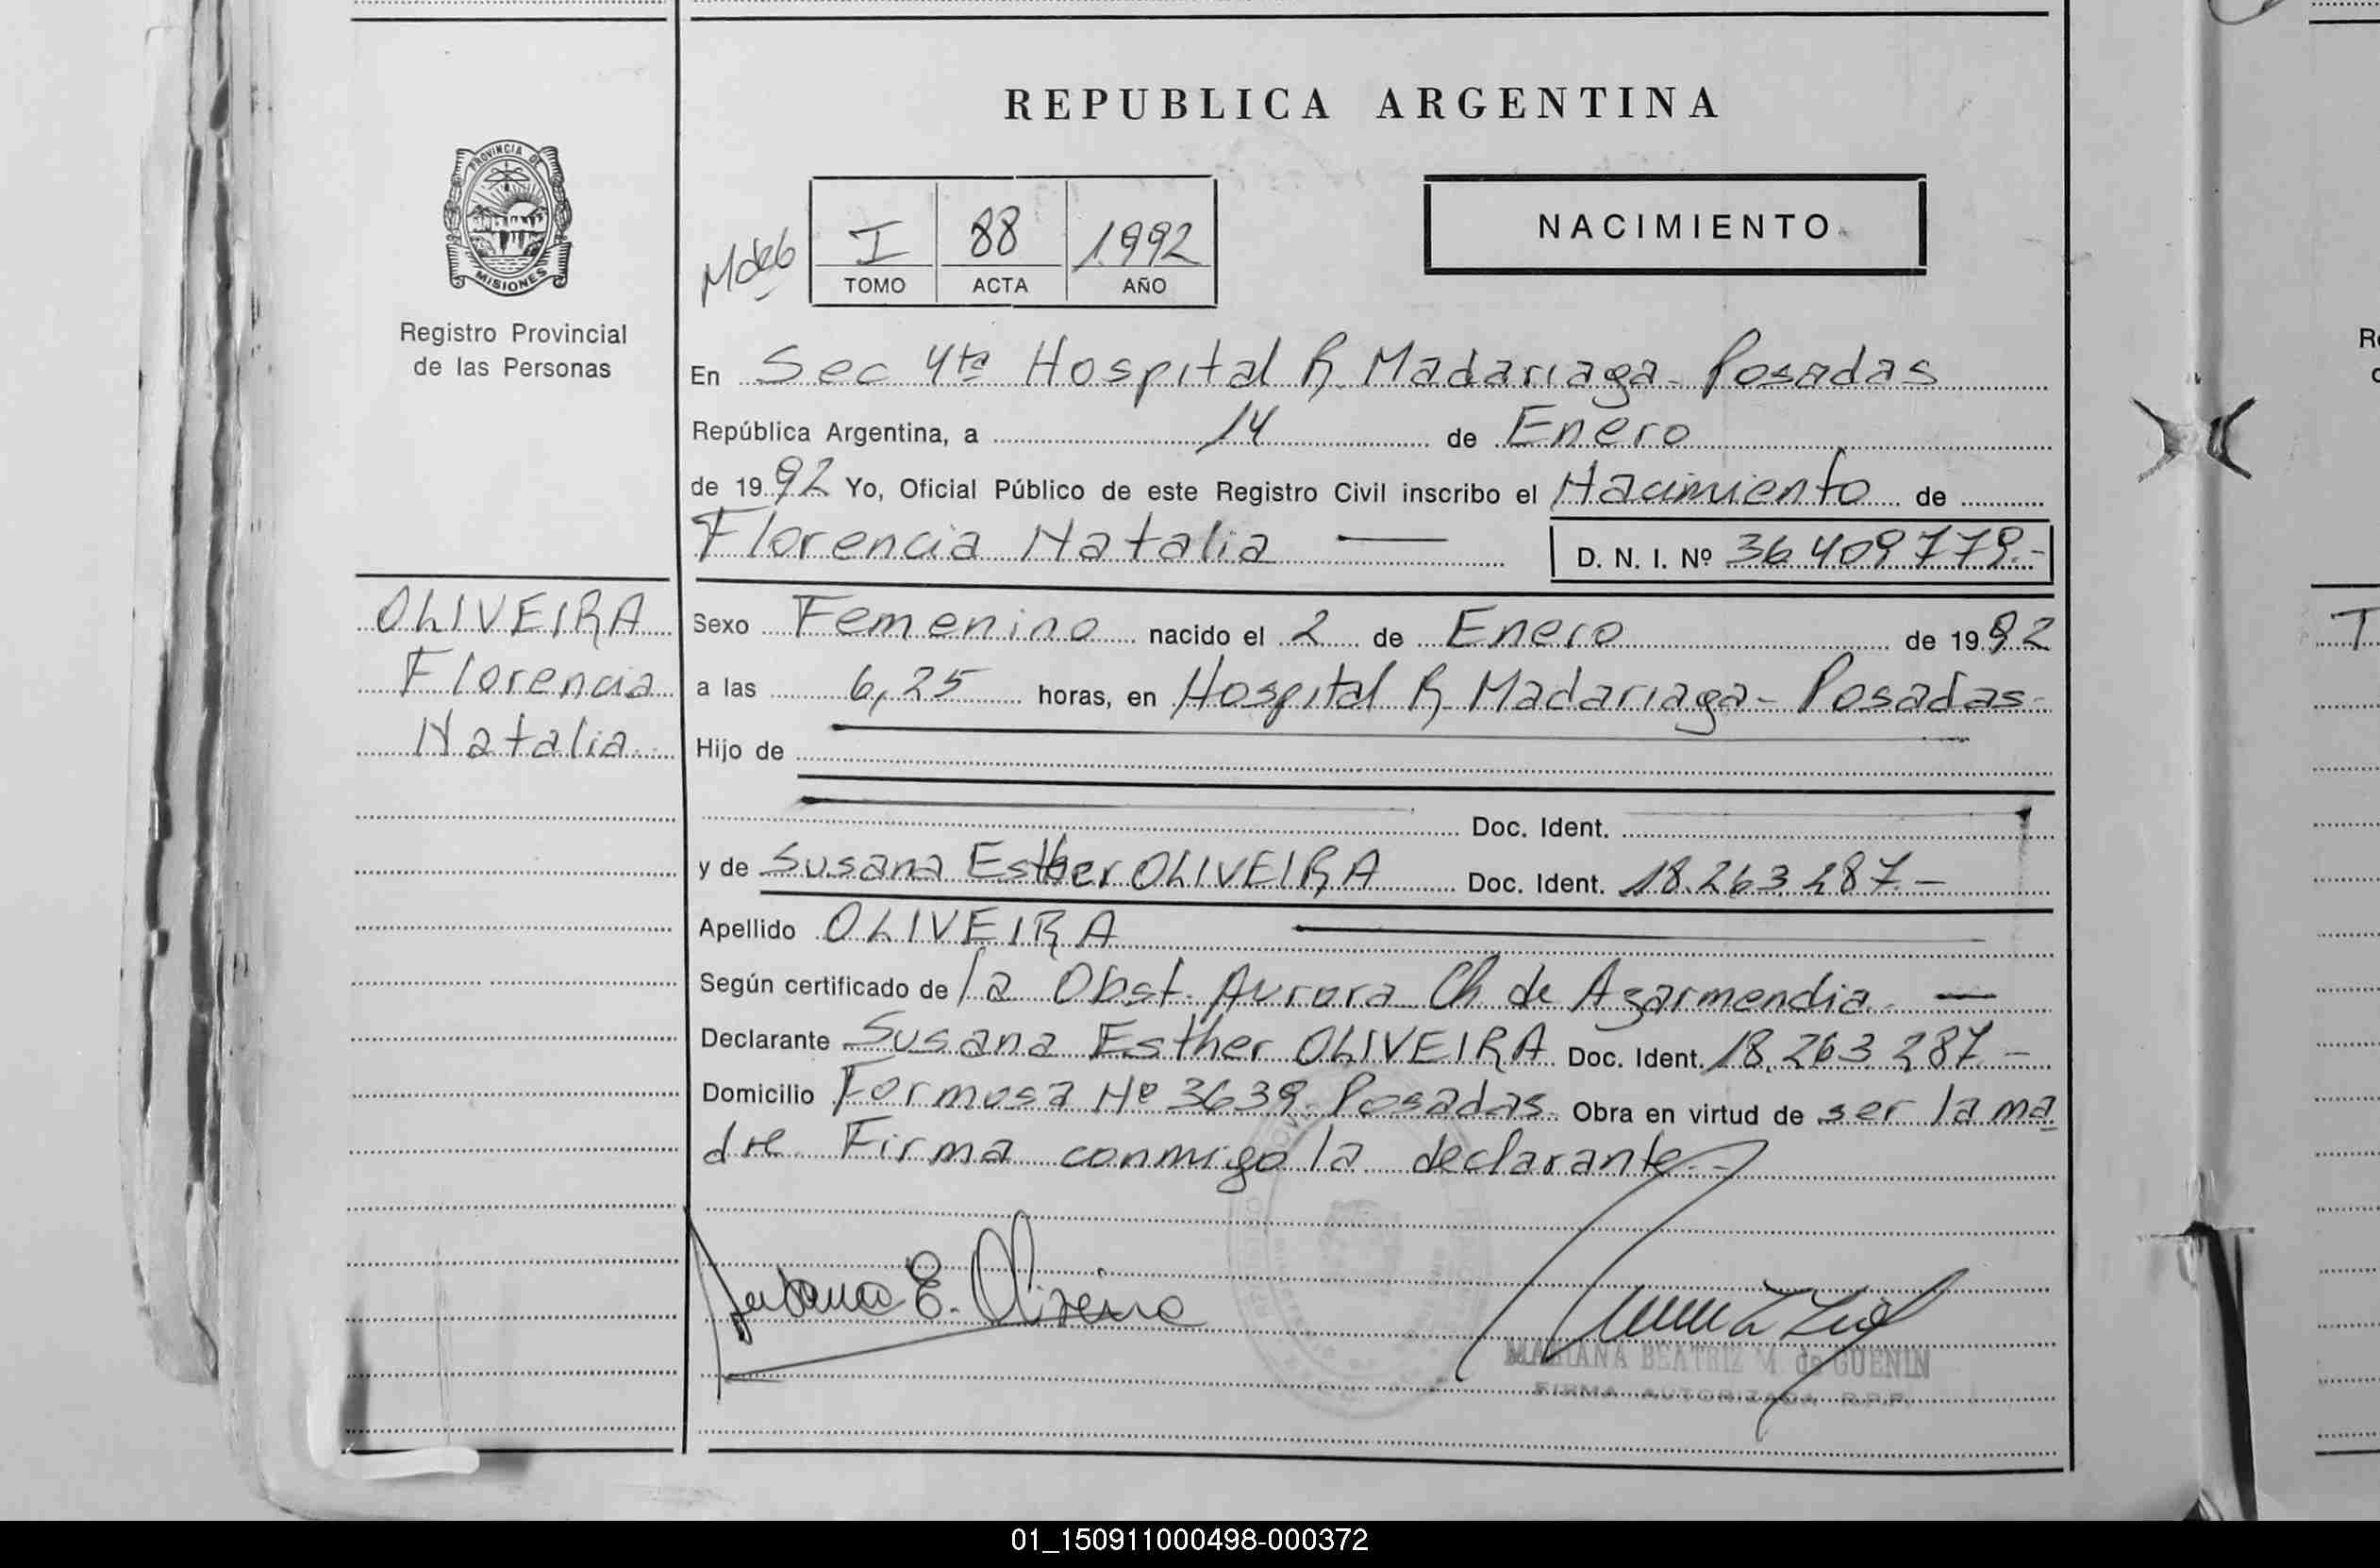 REPUBLICA ARGENTINA
PROVINCIA DE
MISIONES
Registro Provincial
de las Personas
I 88 1992
TOMO ACTA AÑO
NACIMIENTO
En Sec 4ta Hospital R. Madariaga - Posadas
República Argentina, a 14 de Enero
de 1992 Yo, Oficial Público de este Registro Civil inscribo el Nacimiento de
Florencia Natalia — D. N. I. Nº 36409779.-
OLIVEIRA
Florencia
Natalia
Sexo Femenino nacido el 2 de Enero de 1992
a las 6,25 horas, en Hospital R. Madariaga - Posadas-
Hijo de
Doc. Ident.
y de Susana Esther OLIVEIRA Doc. Ident. 18.263.287.-
Apellido OLIVEIRA
Según certificado de la Obst. Aurora Ch de Azarmendia. —
Declarante Susana Esther OLIVEIRA Doc. Ident. 18.263.287.-
Domicilio Formosa Nº 3639. Posadas. Obra en virtud de ser la ma
dre. Firma conmigo la declarante.-
Susana E. Oliveira
MARIANA BEATRIZ M. de GUENIN
FIRMA AUTORIZADA R.P.P.
01_150911000498-000372